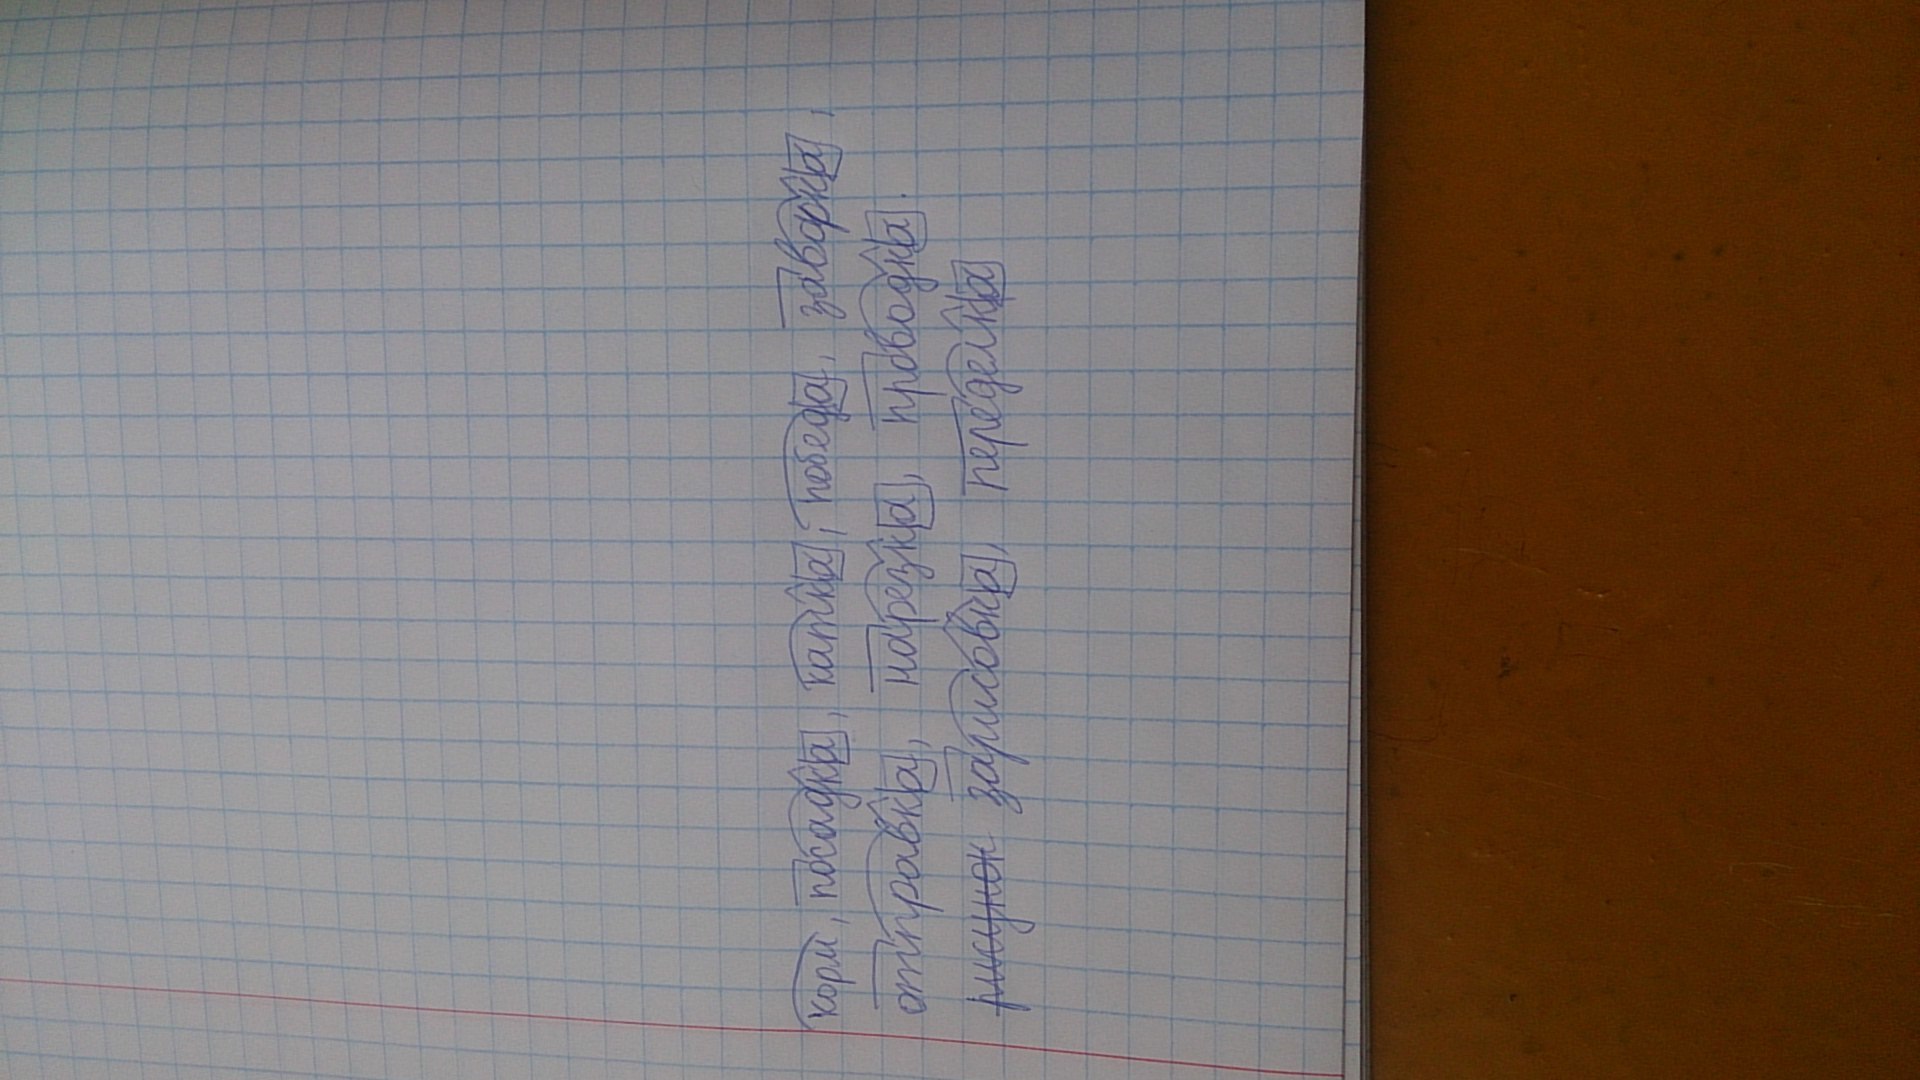 корм, посадка, катка, победа, заварка,
отправка, нарезка, проводка.
рисунок зарисовка, переделка